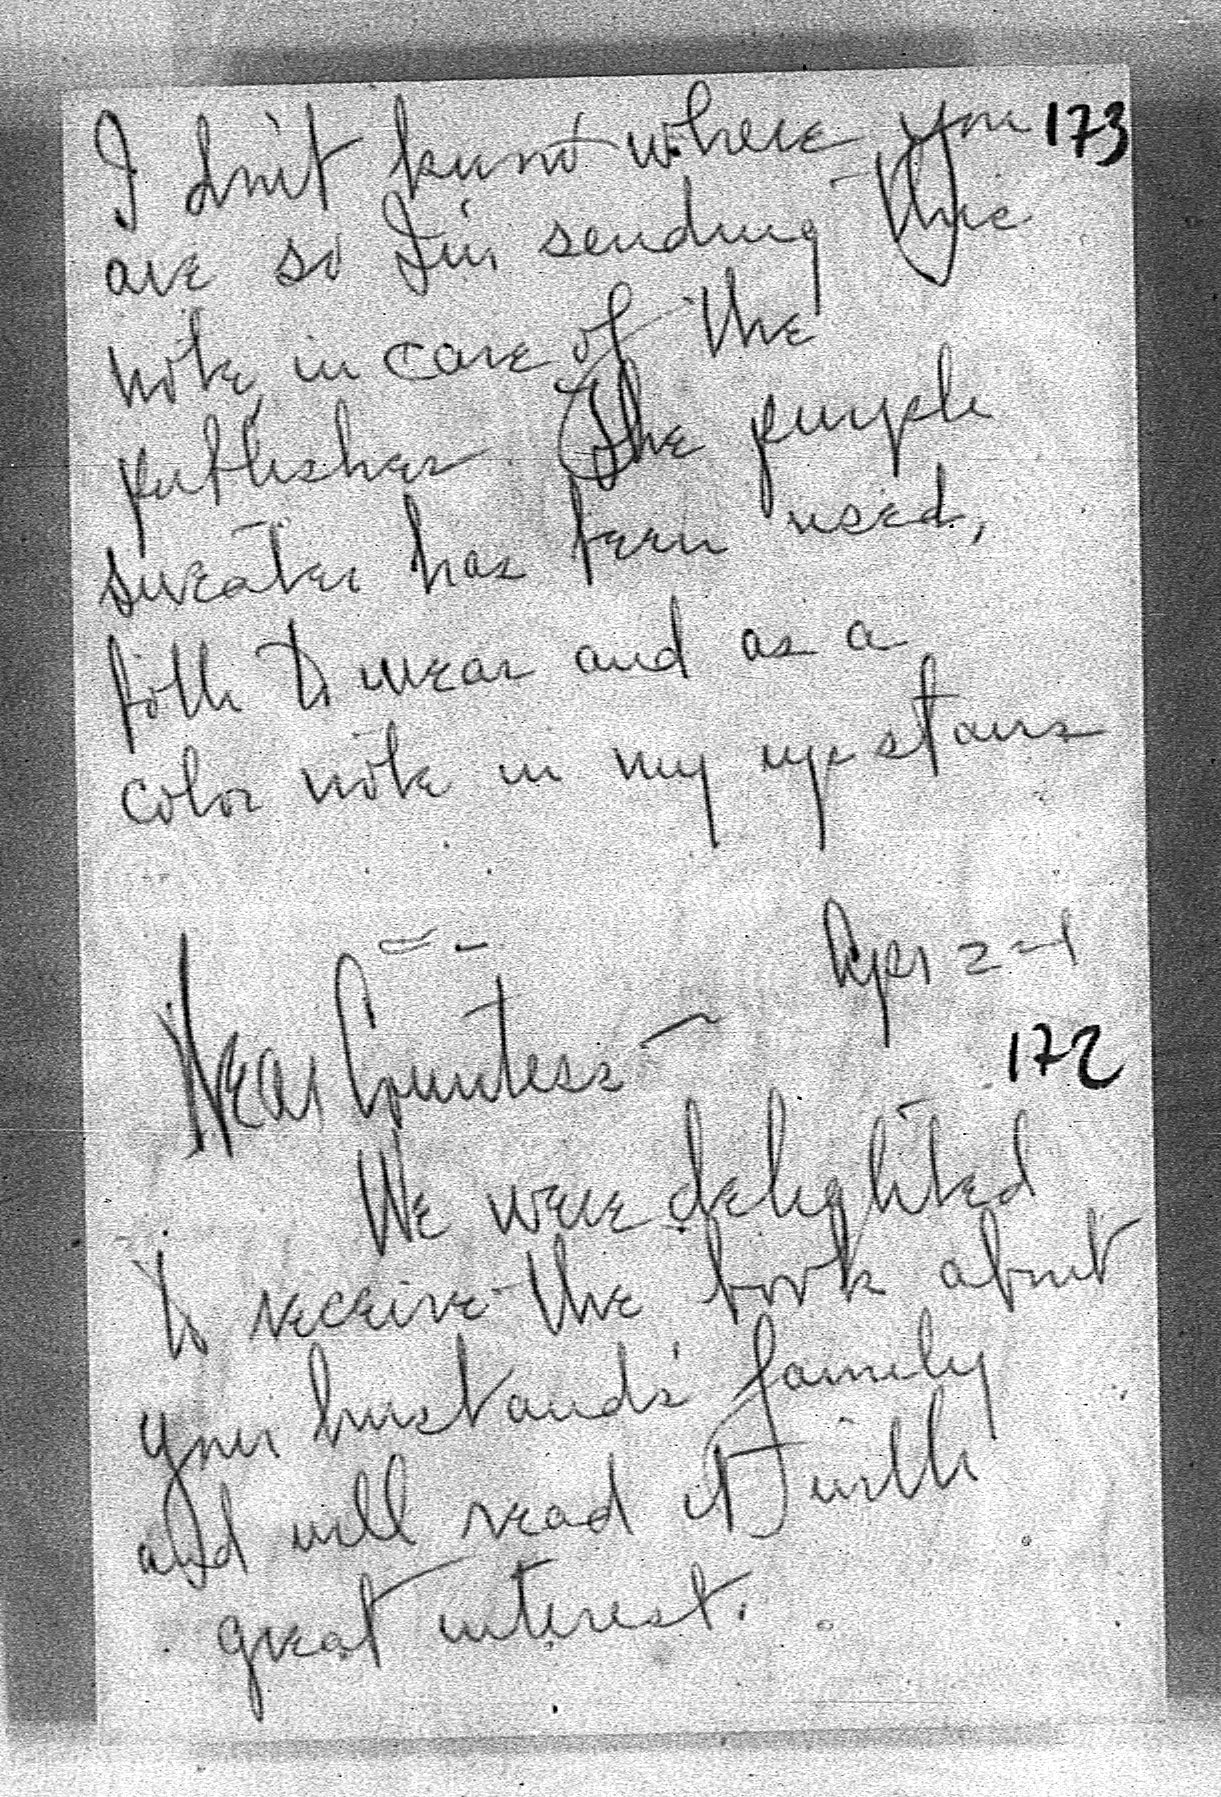 I don't know where you 173
are so I'm sending this
note in care of the
publisher. The purple
sweater has been used,
both to wear and as a
color note in my upstairs
Apr 2-1
Dear Countess -
172
We were delighted
to receive the book about
your husband's family
and will read it with
great interest.